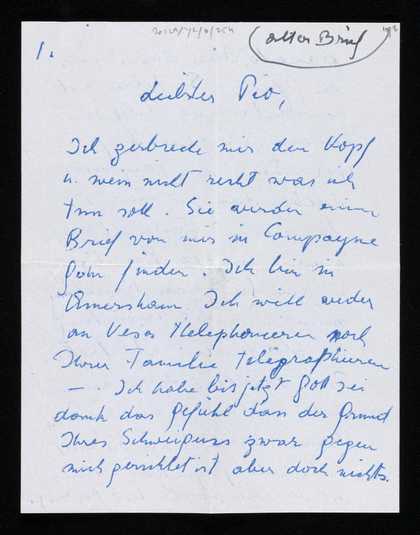 alter Brief
1.
Liebster Pio,
Ich zerbreche mir den Kopf
u. weiss nicht recht was ich
tun soll. Sie werden einen
Brief von mir in Compayne
gdns finden. Ich bin in
Amersham Ich will weder
an Veza telephonieren noch
Ihrer Familie telegraphieren
— . Ich habe bis jetzt Gott sei
dank das Gefühl dass der Grund
Ihres Schweigens zwar gegen
mich gerichtet ist aber doch nichts.